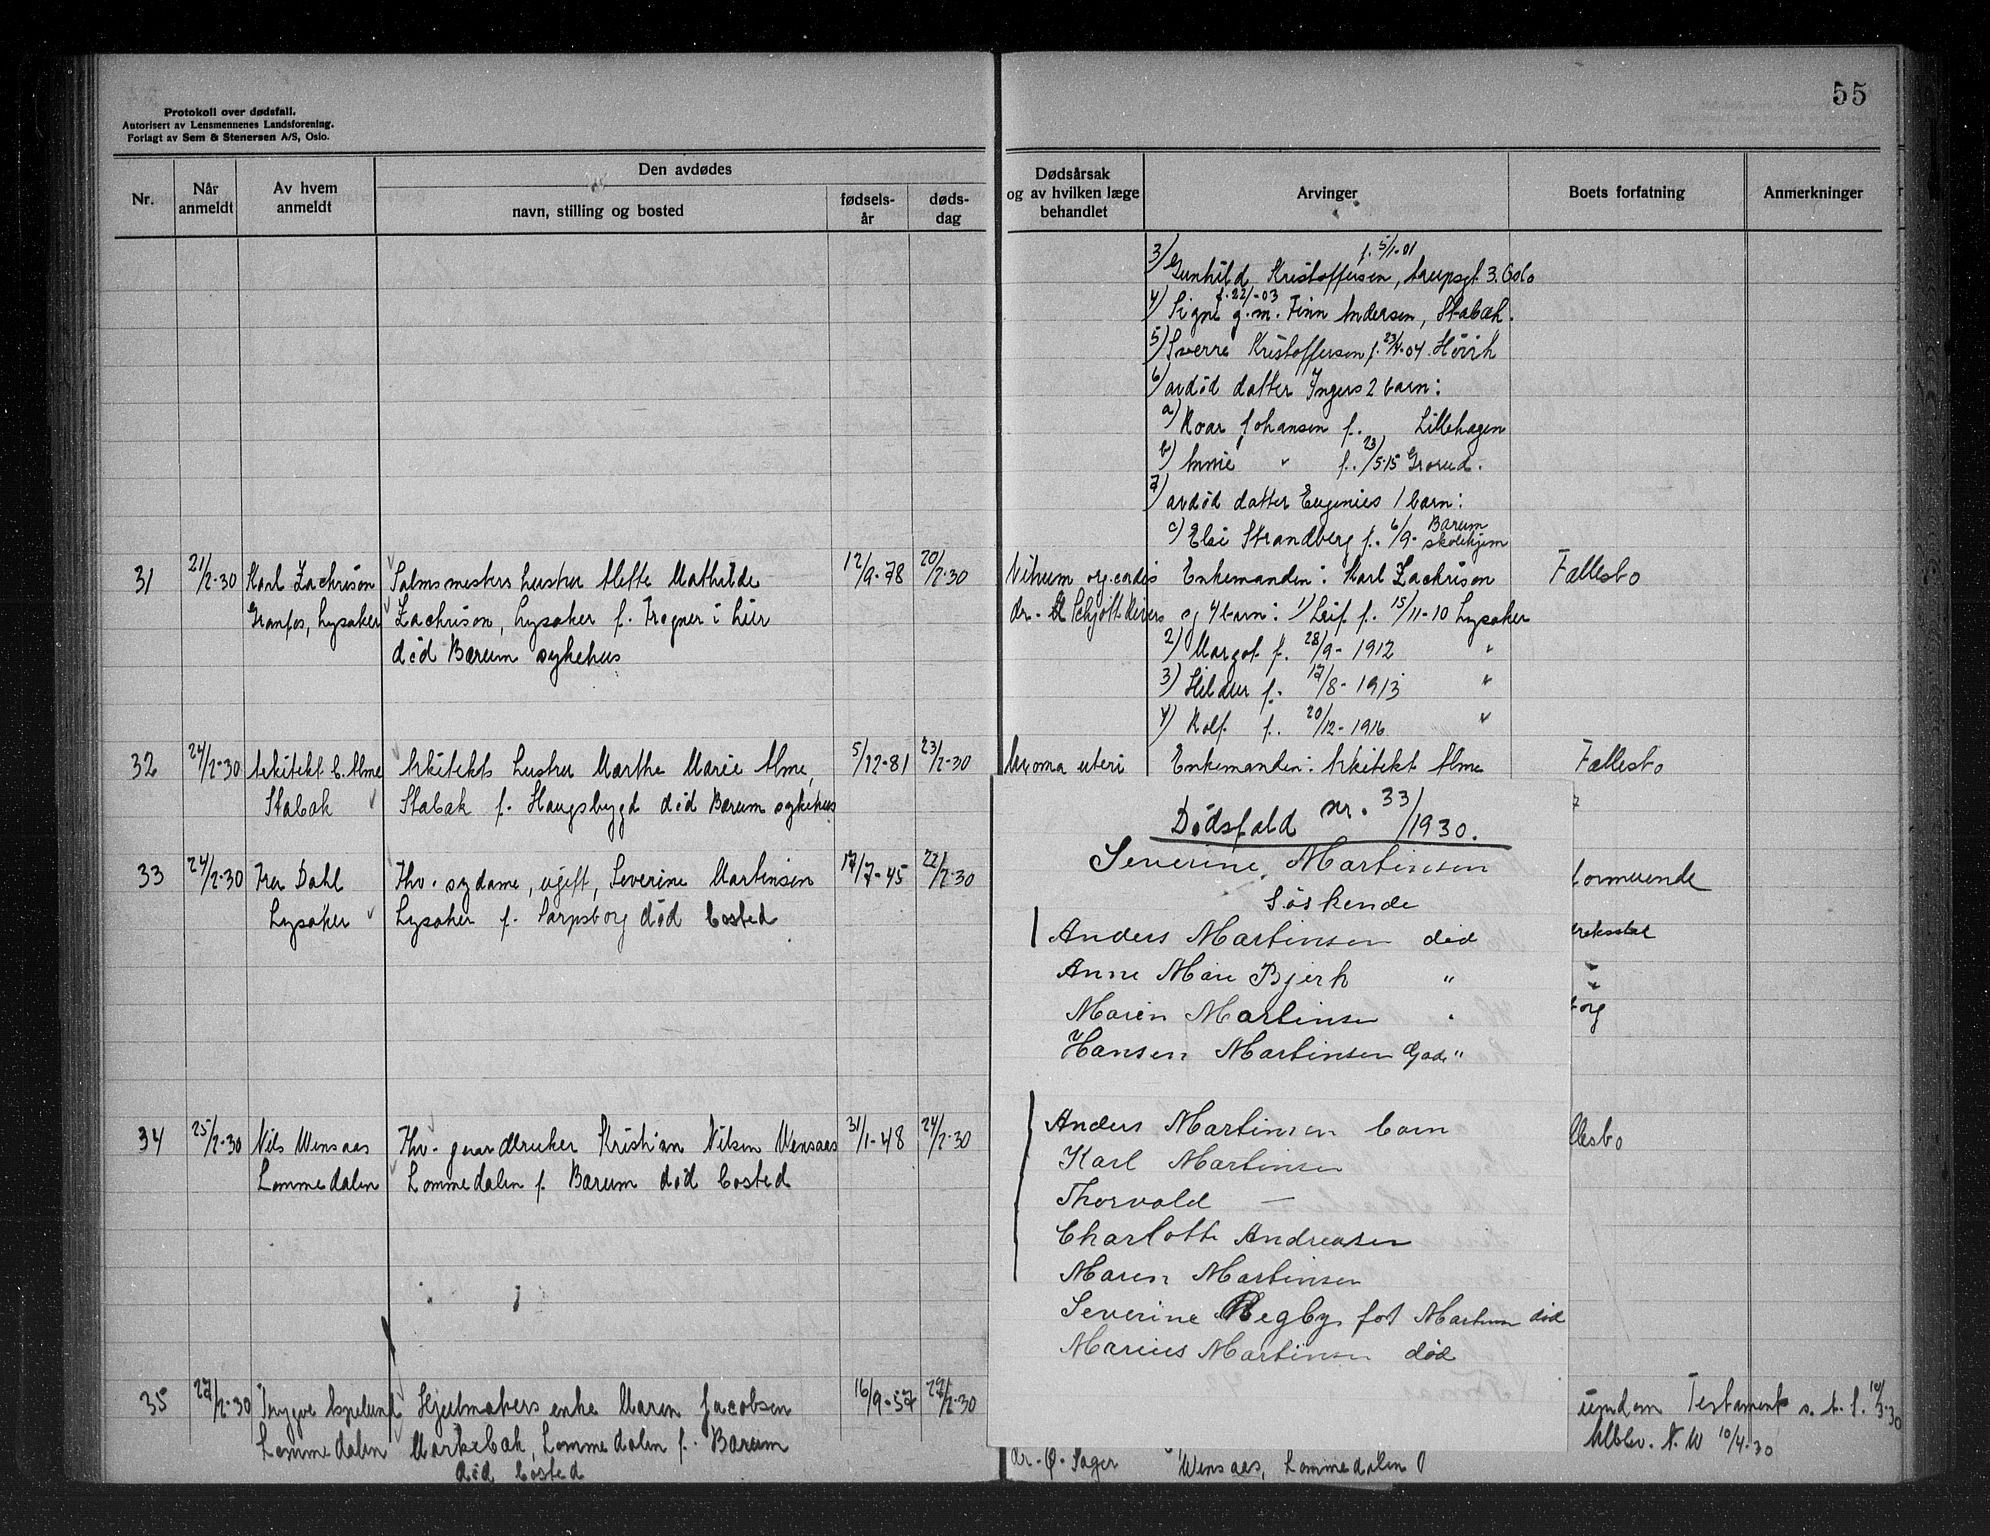 55
Protokoll over dødsfall.
Autorisert av Lensmennenes Landsforening.
Forlagt av Sem & Stenersen A/S, Oslo.
Nr.
Når anmeldt
Av hvem anmeldt
Den avdødes
navn, stilling og bosted
fødsels-år
døds-dag
Dødsårsak og av hvilken læge behandlet
Arvinger
Boets forfatning
Anmerkninger
f. 5/1-01
3) Gunhild Kristoffersen, 3. Oslo
f. 22/-03
4) Signe g.m. Finn Andersen, Stabæk.
5) Sverre Kristoffersen f. 23/4-04 Høvik
6) avdød datter Ingers 2 barn:
a) Roar Johansen f. Lillehagen
b) " f. 23/5-15 Grorud.
7) avdød datter Eugenies 1 barn:
c) Elsi Strandberg f. 6/9- Bærum skolehjem
31 21/2-30 Karl Zachrison Salmsmesters hustru Mathilde 12/9-78 20/2-30 Vitium org. cordis Enkemanden: Karl Zachrison Fællesbo
Granfos, Lysaker Zachrison, Lysaker f. Trøgner i Lier dr. Schjøtt Rivers og 4 barn: 1) Leif f. 15/11-10 Lysaker
død Bærum sykehus 2) Margot f. 28/9-1912 "
3) Hildur f. 17/8-1913 "
4) Rolf f. 20/12-1916 "
32 24/2-30 Arkitekt C. Alme Arkitekts hustru Marthe Marie Alme, 5/12-81 23/2-30 Myoma uteri Enkemanden: Arkitekt Alme Fællesbo
Stabæk Stabæk f. Haugsbygd død Bærum sykehus
33 24/2-30 Fru Dahl Fhv. sydame, ugift, Severine Martinsen 17/7-45 22/2-30 formuende
Lysaker Lysaker f. Sarpsborg død bosted
34 25/2-30 Nils Wensaas Fhv. gaardbruker Kristian Nilsen Wensaas 31/1-48 24/2-30 llesbo
Lommedalen Lommedalen f. Bærum død bosted
35 27/2-30 Trygve Hjulmakers enke Maren Jacobsen 16/9-57 27/2-30 Testament s. t. S. 10/3-30
Lommedalen Markebæk, Lommedalen f. Bærum Utblev. N. W 10/4-30
død bosted dr. Ø. Sager Wensaas, Lommedalen
Dødsfald nr. 33/1930.
Severine Martinsen
Søskende
Anders Martinsen død
Anne Mari Bjerk "
Maren Martinsen "
Hansen Martinsen "
Anders Martinsen barn
Karl Martinsen
Thorvald —
Charlotte Andreasen
Maren Martinsen
Severine Regby født Martinsen død
Marius Martinsen død